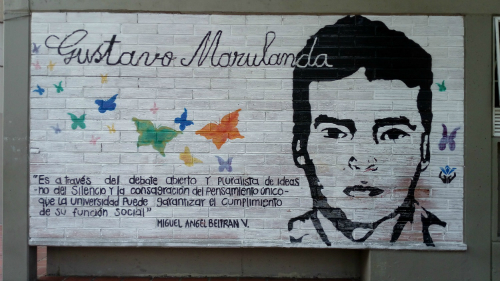 Gustavo Marulanda
"Es a través del debate abierto y pluralista de ideas
-no del silencio y la consagración del pensamiento único-
que la universidad puede garantizar el cumplimiento
de su función social"
MIGUEL ANGEL BELTRAN V.